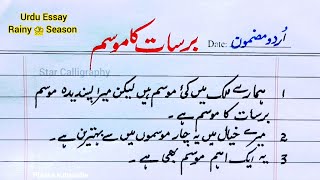 Urdu Essay
Rainy Season
برسات کا موسم
اُردو مضمون
Date:
Star Calligraphy
1 ہمارے ملک میں کئی موسم ہیں لیکن میرا پسندیدہ موسم
برسات کا موسم ہے۔
2 میرے خیال میں یہ چار موسموں میں سے بہترین ہے۔
3 یہ ایک اہم موسم بھی ہے۔